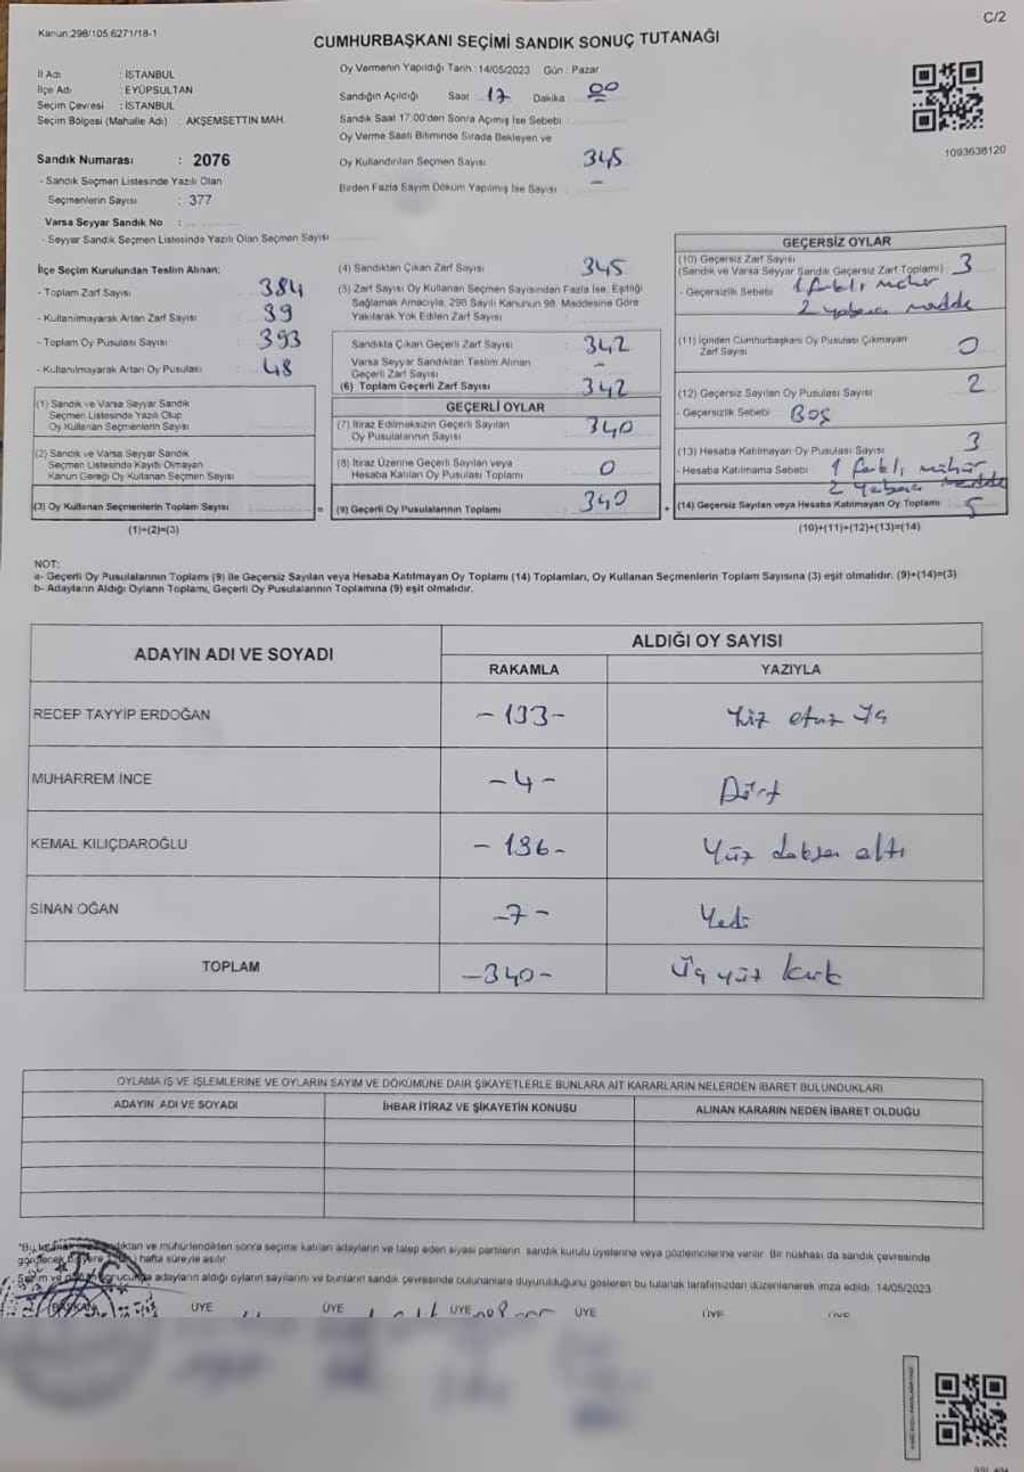 C/2
Kanun:298/105.6271/18-1
CUMHURBAŞKANI SEÇİMİ SANDIK SONUÇ TUTANAĞI
İl Adı : İSTANBUL
İlçe Adı : EYÜPSULTAN
Seçim Çevresi : İSTANBUL
Seçim Bölgesi (Mahalle Adı) : AKŞEMSETTİN MAH.
Sandık Numarası : 2076
- Sandık Seçmen Listesinde Yazılı Olan
Seçmenlerin Sayısı : 377
Varsa Seyyar Sandık No :
- Seyyar Sandık Seçmen Listesinde Yazılı Olan Seçmen Sayısı
Oy Vermenin Yapıldığı Tarih : 14/05/2023 Gün : Pazar
Sandığın Açıldığı Saat : 17 Dakika 00
Sandık Saat 17:00'den Sonra Açılmış İse Sebebi :
Oy Verme Saati Bitiminde Sırada Bekleyen ve
Oy Kullandırılan Seçmen Sayısı 345
Birden Fazla Sayım Döküm Yapılmış İse Sayısı : -
1093638120
İlçe Seçim Kurulundan Teslim Alınan:
- Toplam Zarf Sayısı 384
- Kullanılmayarak Artan Zarf Sayısı 39
- Toplam Oy Pusulası Sayısı 393
- Kullanılmayarak Artan Oy Pusulası 48
(1) Sandık ve Varsa Seyyar Sandık
Seçmen Listesinde Yazılı Olup
Oy Kullanan Seçmenlerin Sayısı
(2) Sandık ve Varsa Seyyar Sandık
Seçmen Listesinde Kaydı Olmayan
Kanun Gereği Oy Kullanan Seçmen Sayısı
(3) Oy Kullanan Seçmenlerin Toplam Sayısı =
(1)+(2)=(3)
(4) Sandıktan Çıkan Zarf Sayısı 345
(5) Zarf Sayısı Oy Kullanan Seçmen Sayısından Fazla İse, Eşitliği
Sağlamak Amacıyla, 298 Sayılı Kanunun 98. Maddesine Göre
Yakılarak Yok Edilen Zarf Sayısı
Sandıkta Çıkan Geçerli Zarf Sayısı 342
Varsa Seyyar Sandıktan Teslim Alınan
Geçerli Zarf Sayısı -
(6) Toplam Geçerli Zarf Sayısı 342
GEÇERLİ OYLAR
(7) İtiraz Edilmeksizin Geçerli Sayılan
Oy Pusulalarının Sayısı 340
(8) İtiraz Üzerine Geçerli Sayılan veya
Hesaba Katılan Oy Pusulası Toplamı 0
(9) Geçerli Oy Pusulalarının Toplamı 340 +
GEÇERSİZ OYLAR
(10) Geçersiz Zarf Sayısı
(Sandık ve Varsa Seyyar Sandık Geçersiz Zarf Toplamı) 3
- Geçersizlik Sebebi 1 farklı mühür
2 yabancı madde
(11) İçinden Cumhurbaşkanı Oy Pusulası Çıkmayan
Zarf Sayısı 0
(12) Geçersiz Sayılan Oy Pusulası Sayısı 2
- Geçersizlik Sebebi Boş
(13) Hesaba Katılmayan Oy Pusulası Sayısı 3
- Hesaba Katılmama Sebebi : 1 farklı mühür
2 yabancı madde
(14) Geçersiz Sayılan veya Hesaba Katılmayan Oy Toplamı 5
(10)+(11)+(12)+(13)=(14)
NOT:
a- Geçerli Oy Pusulalarının Toplamı (9) ile Geçersiz Sayılan veya Hesaba Katılmayan Oy Toplamı (14) Toplamları, Oy Kullanan Seçmenlerin Toplam Sayısına (3) eşit olmalıdır. (9)+(14)=(3)
b- Adayların Aldığı Oyların Toplamı, Geçerli Oy Pusulalarının Toplamına (9) eşit olmalıdır.
ADAYIN ADI VE SOYADI
ALDIĞI OY SAYISI
RAKAMLA YAZIYLA
RECEP TAYYİP ERDOĞAN -133- Yüz otuz üç
MUHARREM İNCE -4- Dört
KEMAL KILIÇDAROĞLU -196- Yüz doksan altı
SİNAN OĞAN -7- Yedi
TOPLAM -340- Üç yüz kırk
OYLAMA İŞ VE İŞLEMLERİNE VE OYLARIN SAYIM VE DÖKÜMÜNE DAİR ŞİKAYETLERLE BUNLARA AİT KARARLARIN NELERDEN İBARET BULUNDUKLARI
ADAYIN ADI VE SOYADI İHBAR İTİRAZ VE ŞİKAYETİN KONUSU ALINAN KARARIN NEDEN İBARET OLDUĞU
ve mühürlendikten sonra seçime katılan adayların ve talep eden siyasi partilerin sandık kurulu üyelerine veya gözlemcilerine verilir. Bir nüshası da sandık çevresinde
hafta süreyle asılır.
adayların aldığı oyların sayılarını ve bunların sandık çevresinde bulunanlara duyurulduğunu gösteren bu tutanak tarafımızdan düzenlenerek imza edildi. 14/05/2023
BAŞKAN ÜYE ÜYE ÜYE ÜYE ÜYE ÜYE